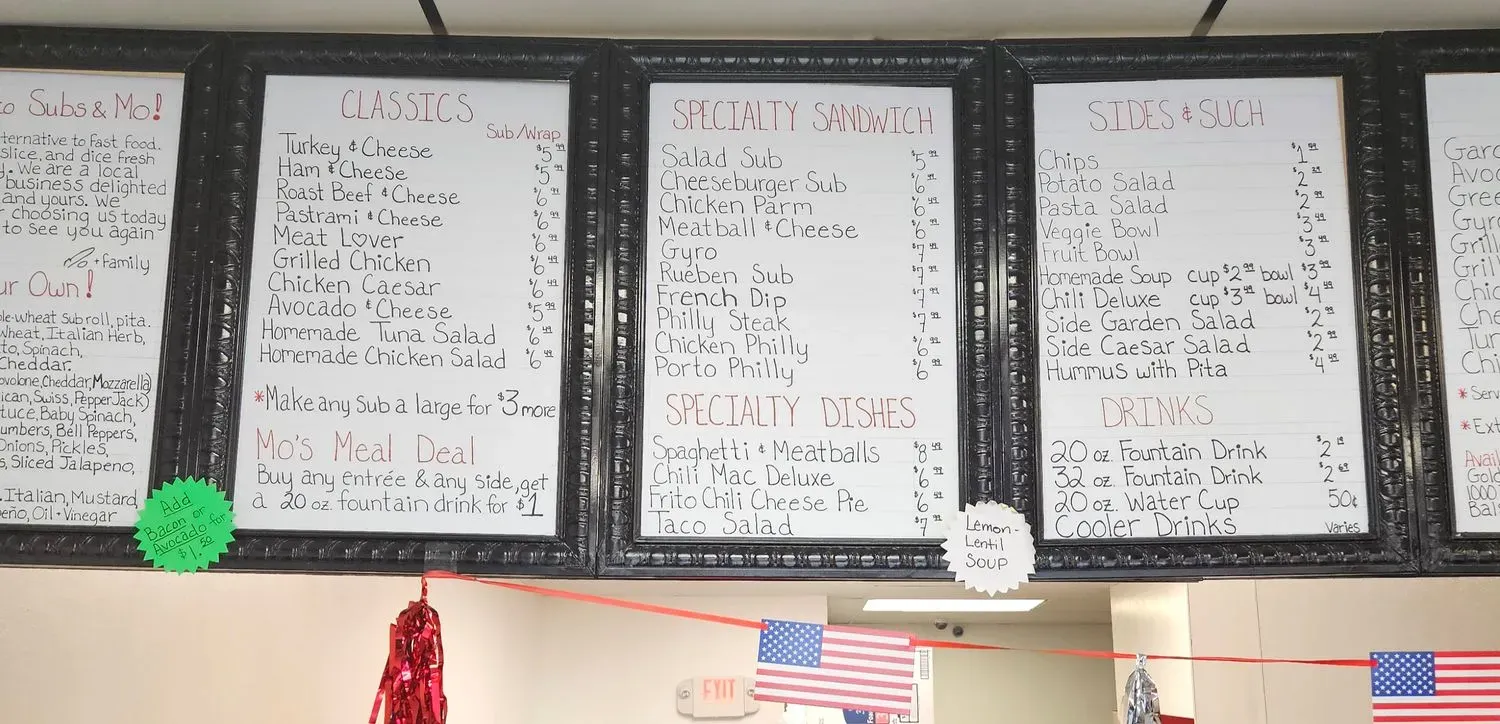 o Subs & Mo!
ternative to fast food.
slice, and dice fresh
y. We are a local
business delighted
and yours. We
r choosing us today
to see you again
+ family
ur Own!
le-wheat sub roll, pita.
wheat, Italian Herb,
to, Spinach,
Cheddar.
ovolone, Cheddar, Mozzarella)
ican, Swiss, Pepper Jack)
tuce, Baby Spinach,
umbers, Bell Peppers,
Onions, Pickles,
s, Sliced Jalapeno,
. Italian, Mustard
eño, Oil + Vinegar
Add
Bacon or
Avocado for
$1.50
CLASSICS
Sub/Wrap
Turkey & Cheese $5.99
Ham & Cheese $5.99
Roast Beef & Cheese $6.99
Pastrami & Cheese $6.99
Meat Lover $6.99
Grilled Chicken $6.49
Chicken Caesar $6.49
Avocado & Cheese $5.99
Homemade Tuna Salad $6.49
Homemade Chicken Salad $6.49
*Make any Sub a large for $3 more
Mo's Meal Deal
Buy any entrée & any side, get
a 20 oz. fountain drink for $1
SPECIALTY SANDWICH
Salad Sub $5.99
Cheeseburger Sub $6
Chicken Parm $6.49
Meatball & Cheese $6.49
Gyro $7.99
Rueben Sub $7.99
French Dip $7.99
Philly Steak $7.99
Chicken Philly $6.99
Porto Philly $6.99
SPECIALTY DISHES
Spaghetti & Meatballs $8.49
Chili Mac Deluxe $6
Frito Chili Cheese Pie $6
Taco Salad $7
Lemon-
Lentil
Soup
SIDES & SUCH
Chips $1
Potato Salad $2
Pasta Salad $2
Veggie Bowl $3.49
Fruit Bowl $3.49
Homemade Soup cup $2.99 bowl $3.99
Chili Deluxe cup $3.99 bowl $4
Side Garden Salad $2.99
Side Caesar Salad $2.99
Hummus with Pita $4
DRINKS
20 oz. Fountain Drink $2.19
32 oz. Fountain Drink $2.69
20 oz. Water Cup 50¢
Cooler Drinks Varies
Gard
Avoc
Gree
Gyro
Grill
Grill
Chic
Che
Tur
Chi
* Serv
* Ext
Avail
Gold
1000
Bals
EXIT